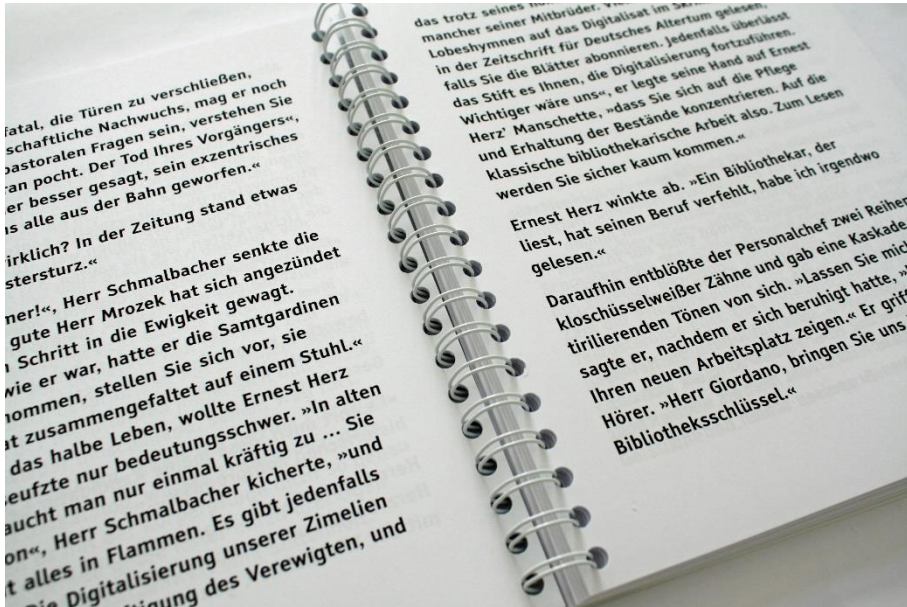 fatal, die Türen zu verschließen,
schaftliche Nachwuchs, mag er noch
pastoralen Fragen sein, verstehen Sie
ran pocht. Der Tod Ihres Vorgängers«,
er besser gesagt, sein exzentrisches
s alle aus der Bahn geworfen.«
irklich? In der Zeitung stand etwas
stersturz.«
mer!«, Herr Schmalbacher senkte die
gute Herr Mrozek hat sich angezündet
n Schritt in die Ewigkeit gewagt.
wie er war, hatte er die Samtgardinen
nommen, stellen Sie sich vor, sie
at zusammengefaltet auf einem Stuhl.«
das halbe Leben, wollte Ernest Herz
seufzte nur bedeutungsschwer. »In alten
aucht man nur einmal kräftig zu … Sie
on«, Herr Schmalbacher kicherte, »und
t alles in Flammen. Es gibt jedenfalls
Die Digitalisierung unserer Zimelien
tigung des Verewigten, und
das trotz seines
mancher seiner Mitbrüder.
Lobeshymnen auf das Digitalisat im
in der Zeitschrift für Deutsches Altertum gelesen,
falls Sie die Blätter abonnieren. Jedenfalls überlässt
das Stift es Ihnen, die Digitalisierung fortzuführen.
Wichtiger wäre uns«, er legte seine Hand auf Ernest
Herz' Manschette, »dass Sie sich auf die Pflege
und Erhaltung der Bestände konzentrieren. Auf die
klassische bibliothekarische Arbeit also. Zum Lesen
werden Sie sicher kaum kommen.«
Ernest Herz winkte ab. »Ein Bibliothekar, der
liest, hat seinen Beruf verfehlt, habe ich irgendwo
gelesen.«
Daraufhin entblößte der Personalchef zwei Reihen
kloschüsselweißer Zähne und gab eine Kaskade
tirilierenden Tönen von sich. »Lassen Sie mich
sagte er, nachdem er sich beruhigt hatte,
Ihren neuen Arbeitsplatz zeigen.« Er griff
Hörer. »Herr Giordano, bringen Sie uns
Bibliotheksschlüssel.«